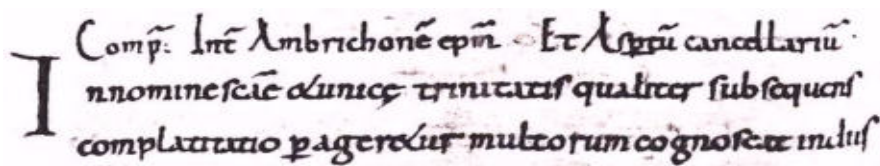 Comp̄. Int̄ Ambrichonē ep̄m. Et Asp̱tū cancellariū.
In nomine scāe & unicę trinitatis qualiter subsequens
complatitatio ꝑageret̄ur multorum cognoscat indus